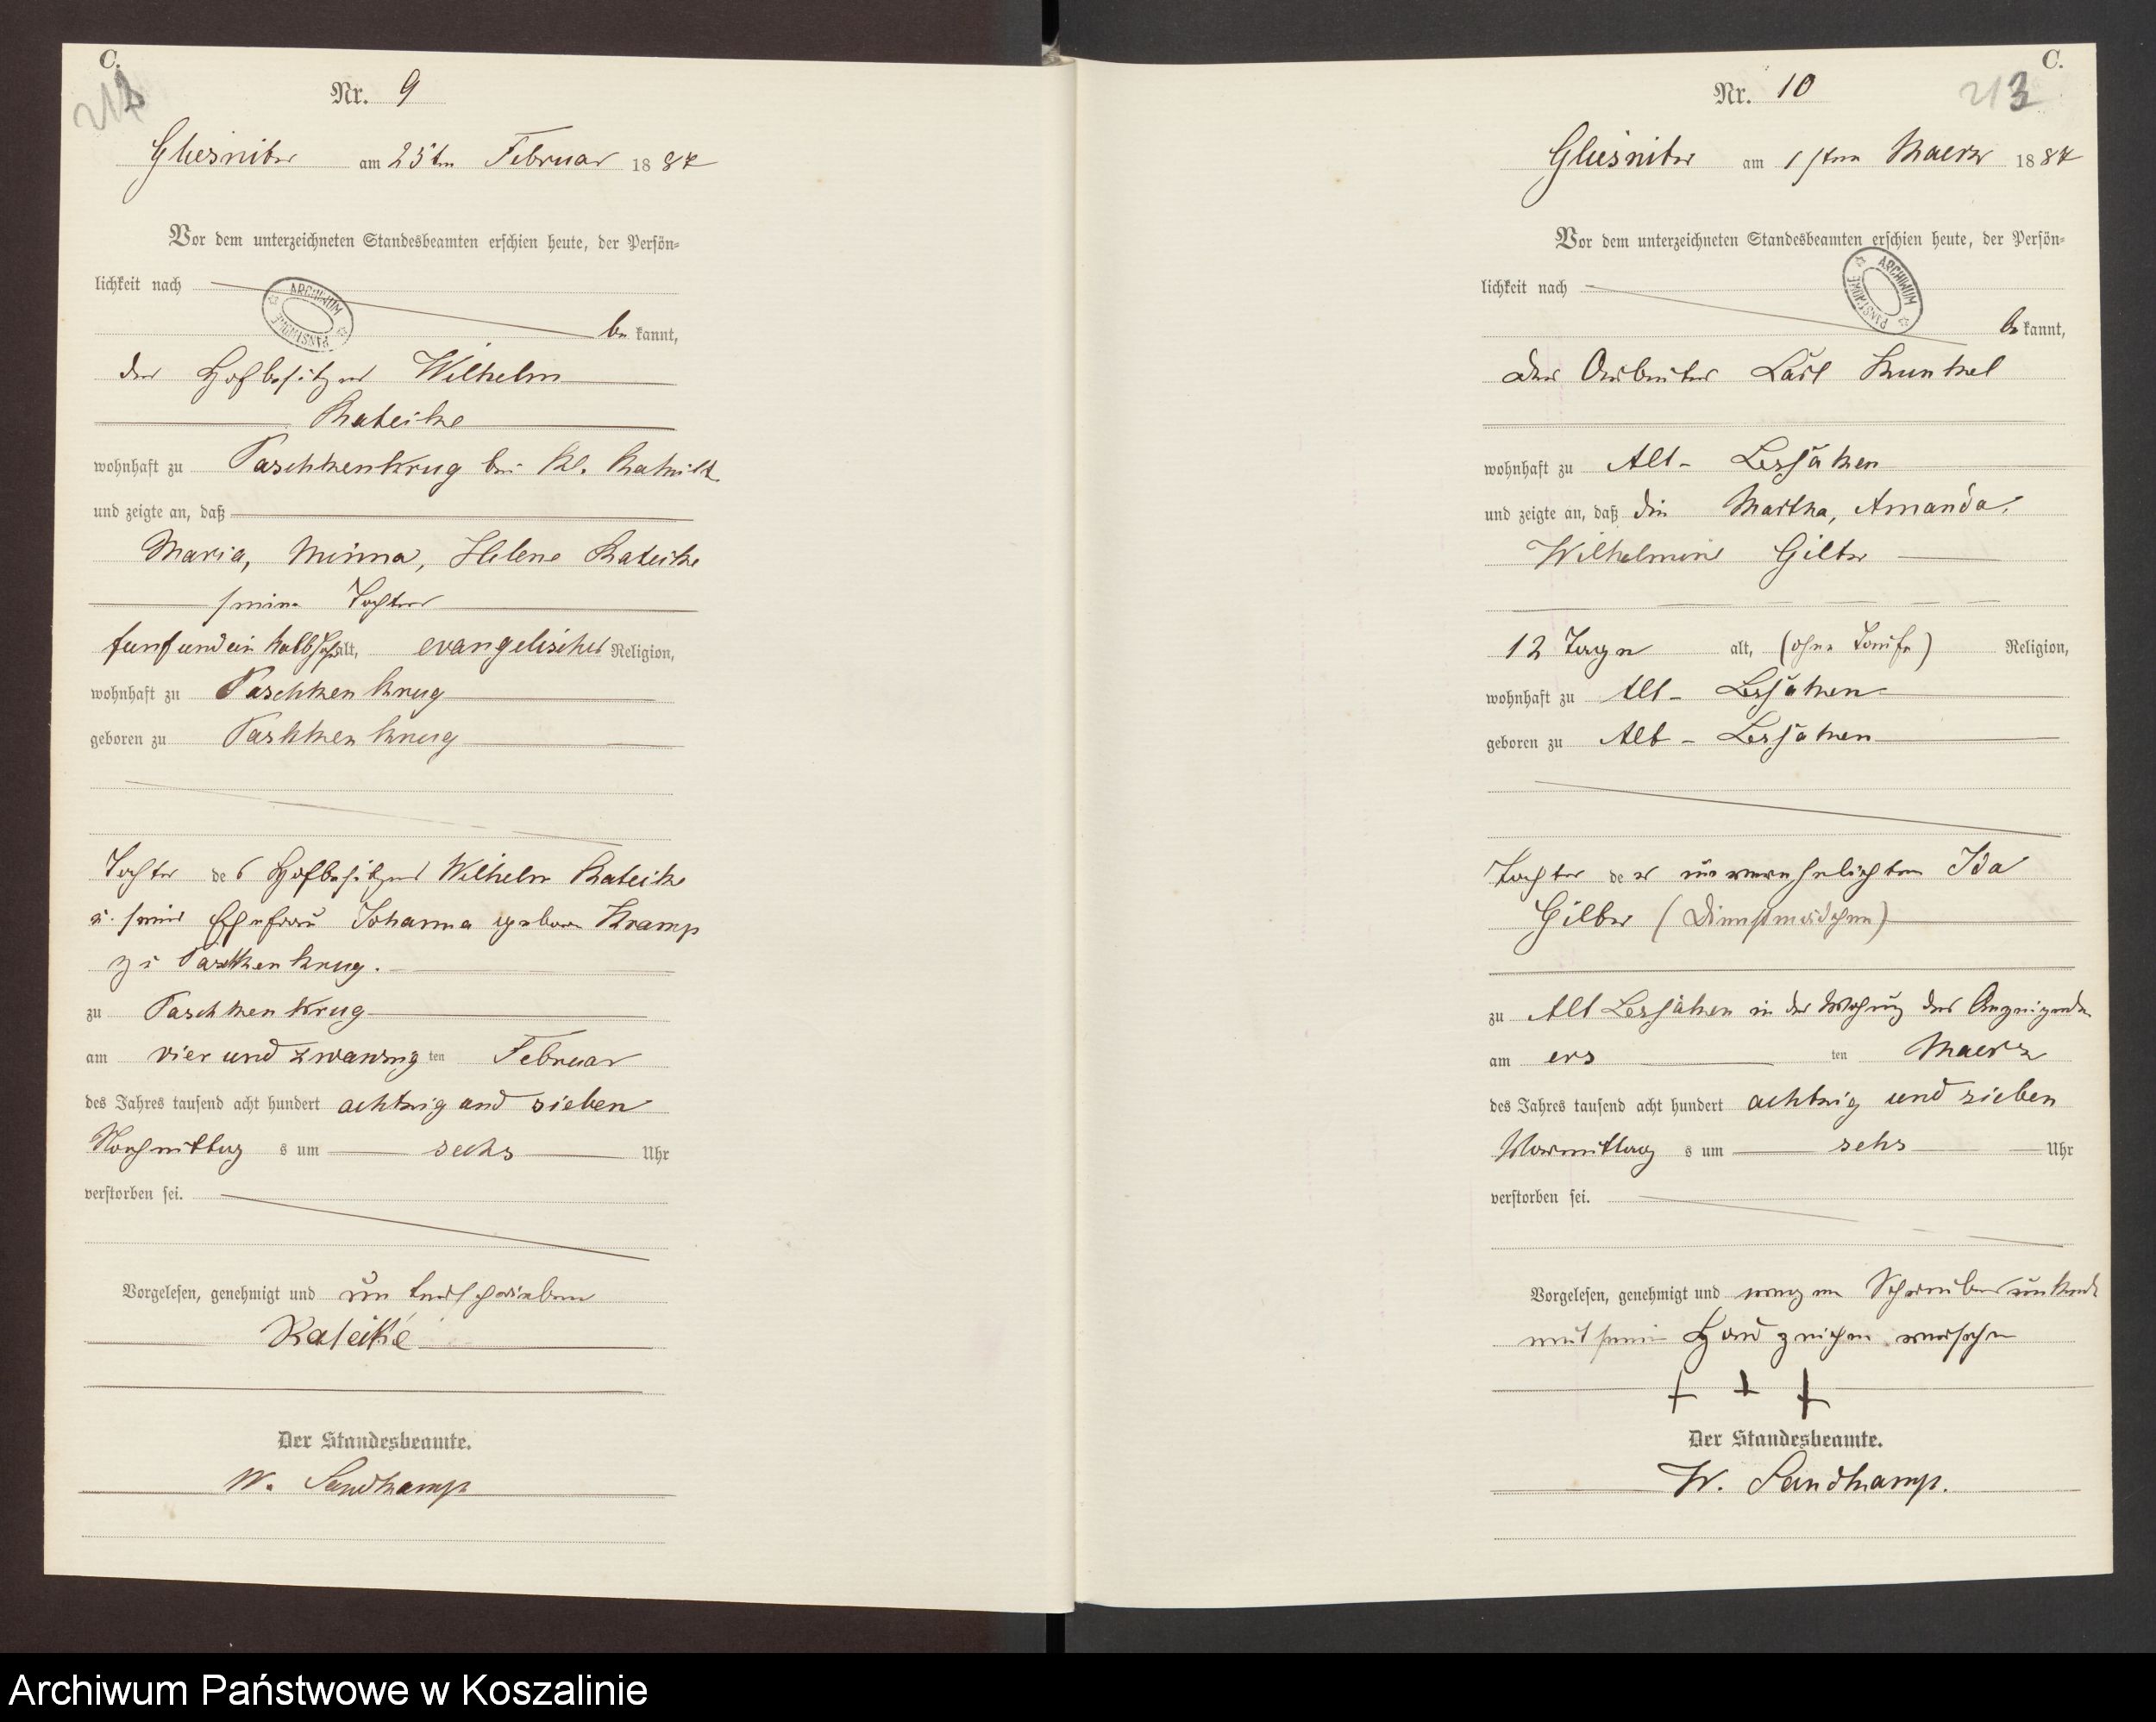 C.
Nr. 9
Gliesnitz am 25ten Februar 1887
Vor dem unterzeichneten Standesbeamten erschien heute, der Persön-
lichkeit nach
ARCHIWUM PAŃSTWOWE
be kannt,
der Hofbesitzer Wilhelm
Rateike
wohnhaft zu Paschkenkrug bei Kl.
und zeigte an, daß
Maria, Minna, Helene Rateike
seine Tochter
funf und ein halb Jahr alt, evangelischer Religion,
wohnhaft zu Paschken Krug
geboren zu Paschken Krug
Tochter des Hofbesitzers Wilhelm Rateike
u. seiner Ehefrau Johanna geboren Kramp
zu Paschken Krug.
zu Paschken Krug
am vier und zwanzig ten Februar
des Jahres tausend acht hundert achtzig und sieben
Nachmittag s um sechs Uhr
verstorben sei.
Vorgelesen, genehmigt und unterschrieben
Rateike
Der Standesbeamte.
W. Sandkamp
C.
213
Nr. 10
Gliesnitz am 1sten Maerz 1887
Vor dem unterzeichneten Standesbeamten erschien heute, der Persön-
lichkeit nach
ARCHIWUM PAŃSTWOWE
be kannt,
der Arbeiter Carl Kunkel
wohnhaft zu Alt- Lessaken
und zeigte an, daß die Martha, Amanda,
Wilhelmine
12 Tage alt, (ohne Taufe) Religion,
wohnhaft zu Alt- Lessaken
geboren zu Alt- Lessaken
Tochter der unverehelichten Ida
(Dienstmädchen)
zu Alt Lessaken in der Wohnung des Anzeigenden
am ers ten Maerz
des Jahres tausend acht hundert achtzig und sieben
Vormittag s um sehs Uhr
verstorben sei.
Vorgelesen, genehmigt und wegen Schreibensunkunde
mit seinem Handzeichen versehen
+ + +
Der Standesbeamte.
W. Sandkamp.
Archiwum Państwowe w Koszalinie